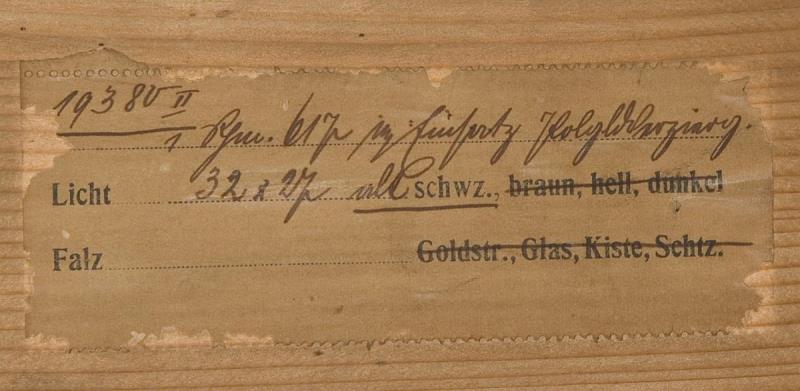 19380 II
1 Rhm. 617 Einsatz
Licht 32 x 27 alt schwz., braun, hell, dunkel
Falz Goldstr., Glas, Kiste, Schtz.